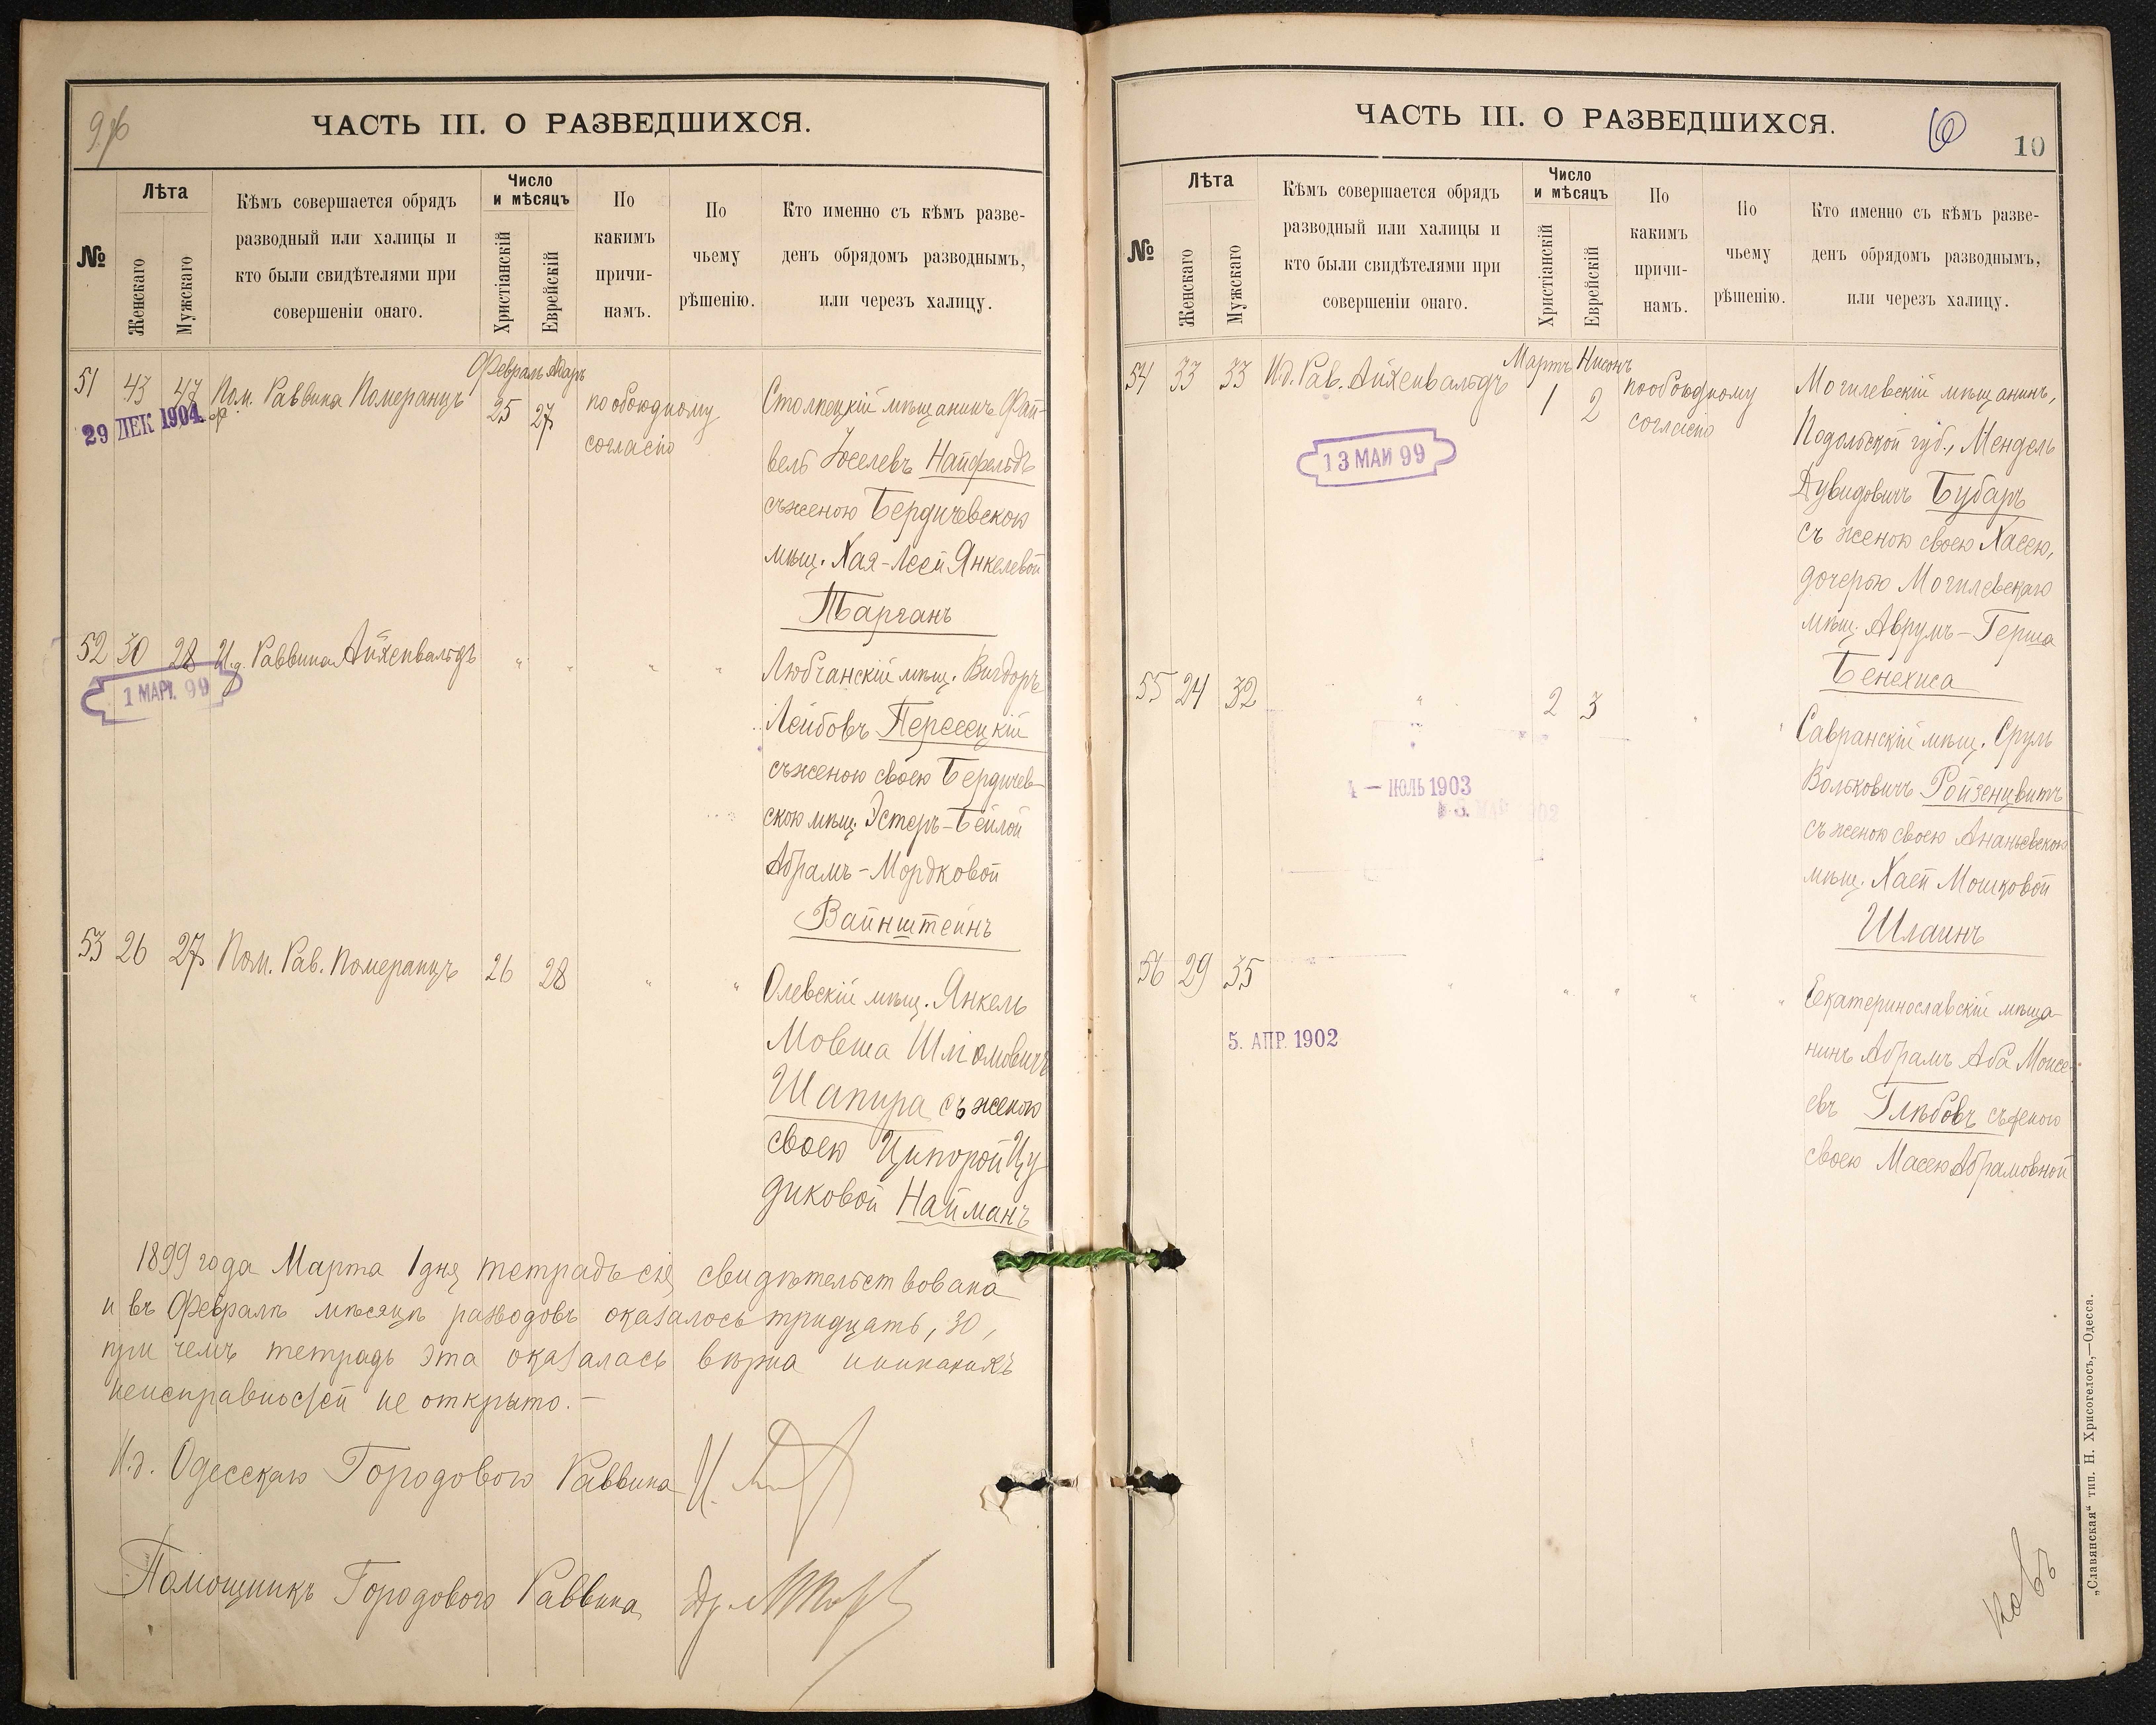 ЧАСТЬ III. О РАЗВЕДШИХСЯ.
№
Лѣта
Женскаго
Мужскаго
Кѣмъ совершается обрядъ
разводный или халицы и
кто были свидѣтелями при
совершеніи онаго.
Число
и мѣсяцъ
Христіанскій
Еврейскій
По
какимъ
причи-
намъ.
По
чьему
рѣшенію.
Кто именно съ кѣмъ разве-
денъ обрядомъ разводнымъ,
или черезъ халицу.
Февраль Адаръ
51 43 47 Пом. Раввина Померанцъ 25 27 по обоюдному
согласію
29 ДЕК 1904
Столпецкій мѣщанинъ Фай-
вель Іоселевъ Найфельдъ
съ женою Бердичевскою
мѣщ. Хая-Леей Янкелевой
Парганъ
52 30 28 И.д. Раввина Айхенвальдъ " " " "
1 МАР. 99
Любчанскій мѣщ. Вигдоръ
Лейбовъ Пересецкій
съ женою своею Бердичев-
скою мѣщ. Эстеръ-Бейлой
Абрамъ-Мордковой
Вайнштейнъ
53 26 27 Пом. Рав. Померанцъ 26 28 " "
Олевскій мѣщ. Янкель
Мовша Шліомовичъ
Шапира съ женою
своею Ципорой Цу-
диковой Найманъ
1899 года Марта 1 дня тетрадь сія свидѣтельствована
и въ Февралѣ мѣсяцѣ разводовъ оказалось тридцать, 30,
при чемъ тетрадь эта оказалась вѣрна и никакихъ
неисправностей не открыто.-
И.д. Одесскаго Городового Раввина
Помощникъ Городового Раввина Др.
ЧАСТЬ III. О РАЗВЕДШИХСЯ.
10
№
Лѣта
Женскаго
Мужскаго
Кѣмъ совершается обрядъ
разводный или халицы и
кто были свидѣтелями при
совершеніи онаго.
Число
и мѣсяцъ
Христіанскій
Еврейскій
По
какимъ
причи-
намъ.
По
чьему
рѣшенію.
Кто именно съ кѣмъ разве-
денъ обрядомъ разводнымъ,
или черезъ халицу.
Мартъ Нисонъ
54 33 33 И.д. Рав. Айхенвальдъ 1 2 по обоюдному
согласію
13 МАЙ 99
Могилевскій мѣщанинъ,
Подольской губ., Мендель
Дувидовичъ Бубаръ
съ женою своею Хасею,
дочерью Могилевскаго
мѣщ. Аврумъ-Герша
Бенехиса
55 24 32 " 2 3 " "
4 - ИЮЛЬ 1903
Савранскій мѣщ. Сруль
Вольковичъ Ройзенцвитъ
съ женою своею Ананьевскою
мѣщ. Хаей Мошковой
Шлаинъ
56 29 35 " " " " "
5. АПР. 1902
Екатеринославскій мѣща-
нинъ Абрамъ Аба Моисе-
евъ Глѣбовъ съ женою
своею Масею Абрамовной
„Славянская“ тип. Н. Хрисогелосъ,—Одесса.